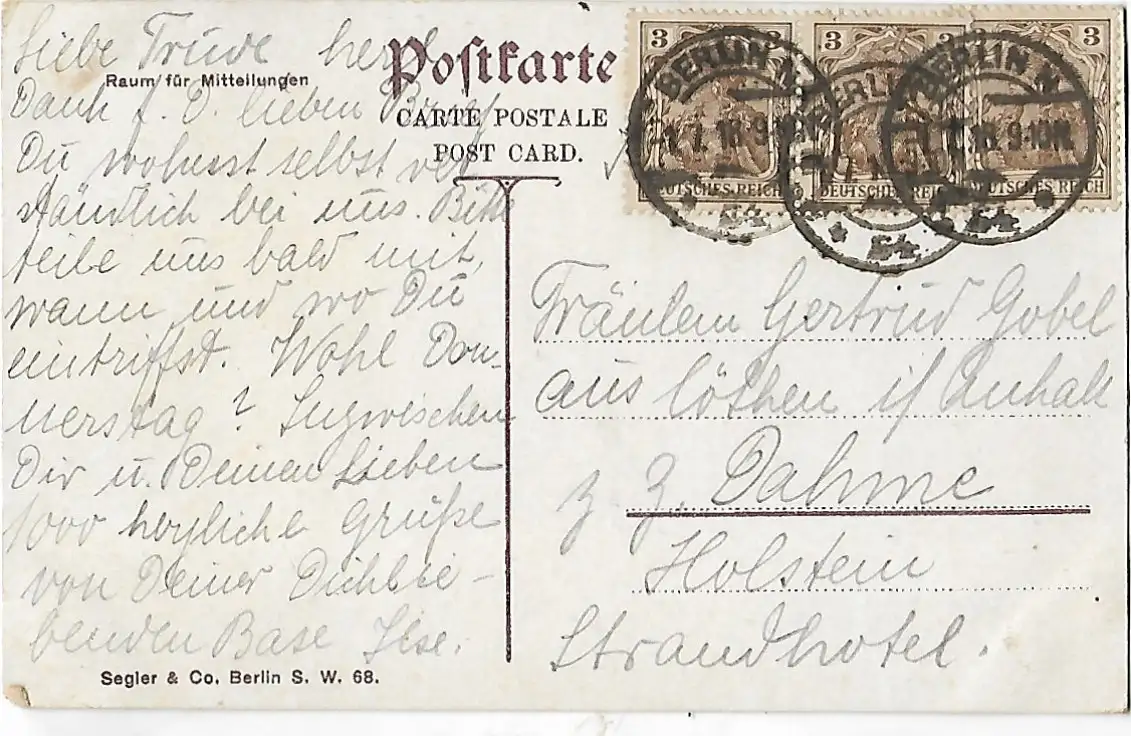 Liebe Trude herzl.
Raum für Mitteilungen
Dank f. D. lieben Brief
Du wohnst selbstver
ständlich bei uns. Bitte
teile uns bald mit,
wann und wo Du
eintriffst. Wohl Don-
nerstag? Inzwischen
Dir u. Deinen Lieben
1000 herzliche Grüße
von Deiner Dichlie-
benden Base Ilse.
Segler & Co. Berlin S. W. 68.
Postkarte
CARTE POSTALE
POST CARD.
3 3 3 3
DEUTSCHES REICH DEUTSCHES REICH DEUTSCHES REICH
BERLIN N. BERLIN BERLIN N.
54 54 54
Fräulein Gertrud Gobel
aus Cöthen i/ Anhalt
z. Z. Dahme
Holstein
Strandhotel.